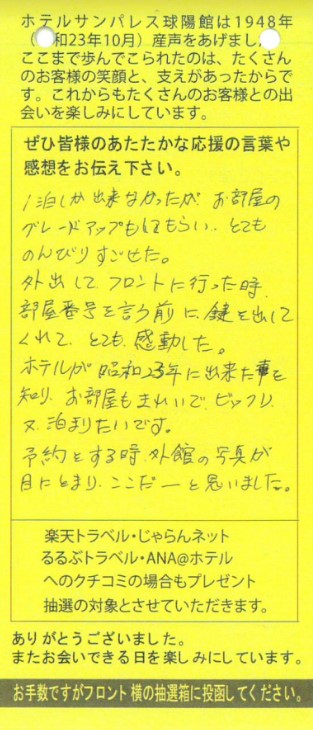 ホテルサンパレス球陽館は1948年
(和23年10月)産声をあげまし
ここまで歩んでこられたのは、たくさん
のお客様の笑顔と、支えがあったからで
す。これからもたくさんのお客様との出
会いを楽しみにしています。
ぜひ皆様のあたたかな応援の言葉や
感想をお伝え下さい。
1泊しか出来なかったが お部屋の
グレードアップもしてもらい、とても
のんびりすごせた。
外出して フロントに行った時、
部屋番号を言う前に 鍵を出して
くれて、とても 感動した。
ホテルが 昭和23年に出来た事を
知り、お部屋もきれいで、ビックリ、
又、泊まりたいです。
予約をする時、外館の写真が
目にとまり、ここだーと思いました。
楽天トラベル・じゃらんネット
るるぶトラベル・ANA@ホテル
へのクチコミの場合もプレゼント
抽選の対象とさせていただきます。
ありがとうございました。
またお会いできる日を楽しみにしています。
お手数ですがフロント横の抽選箱に投函してください。